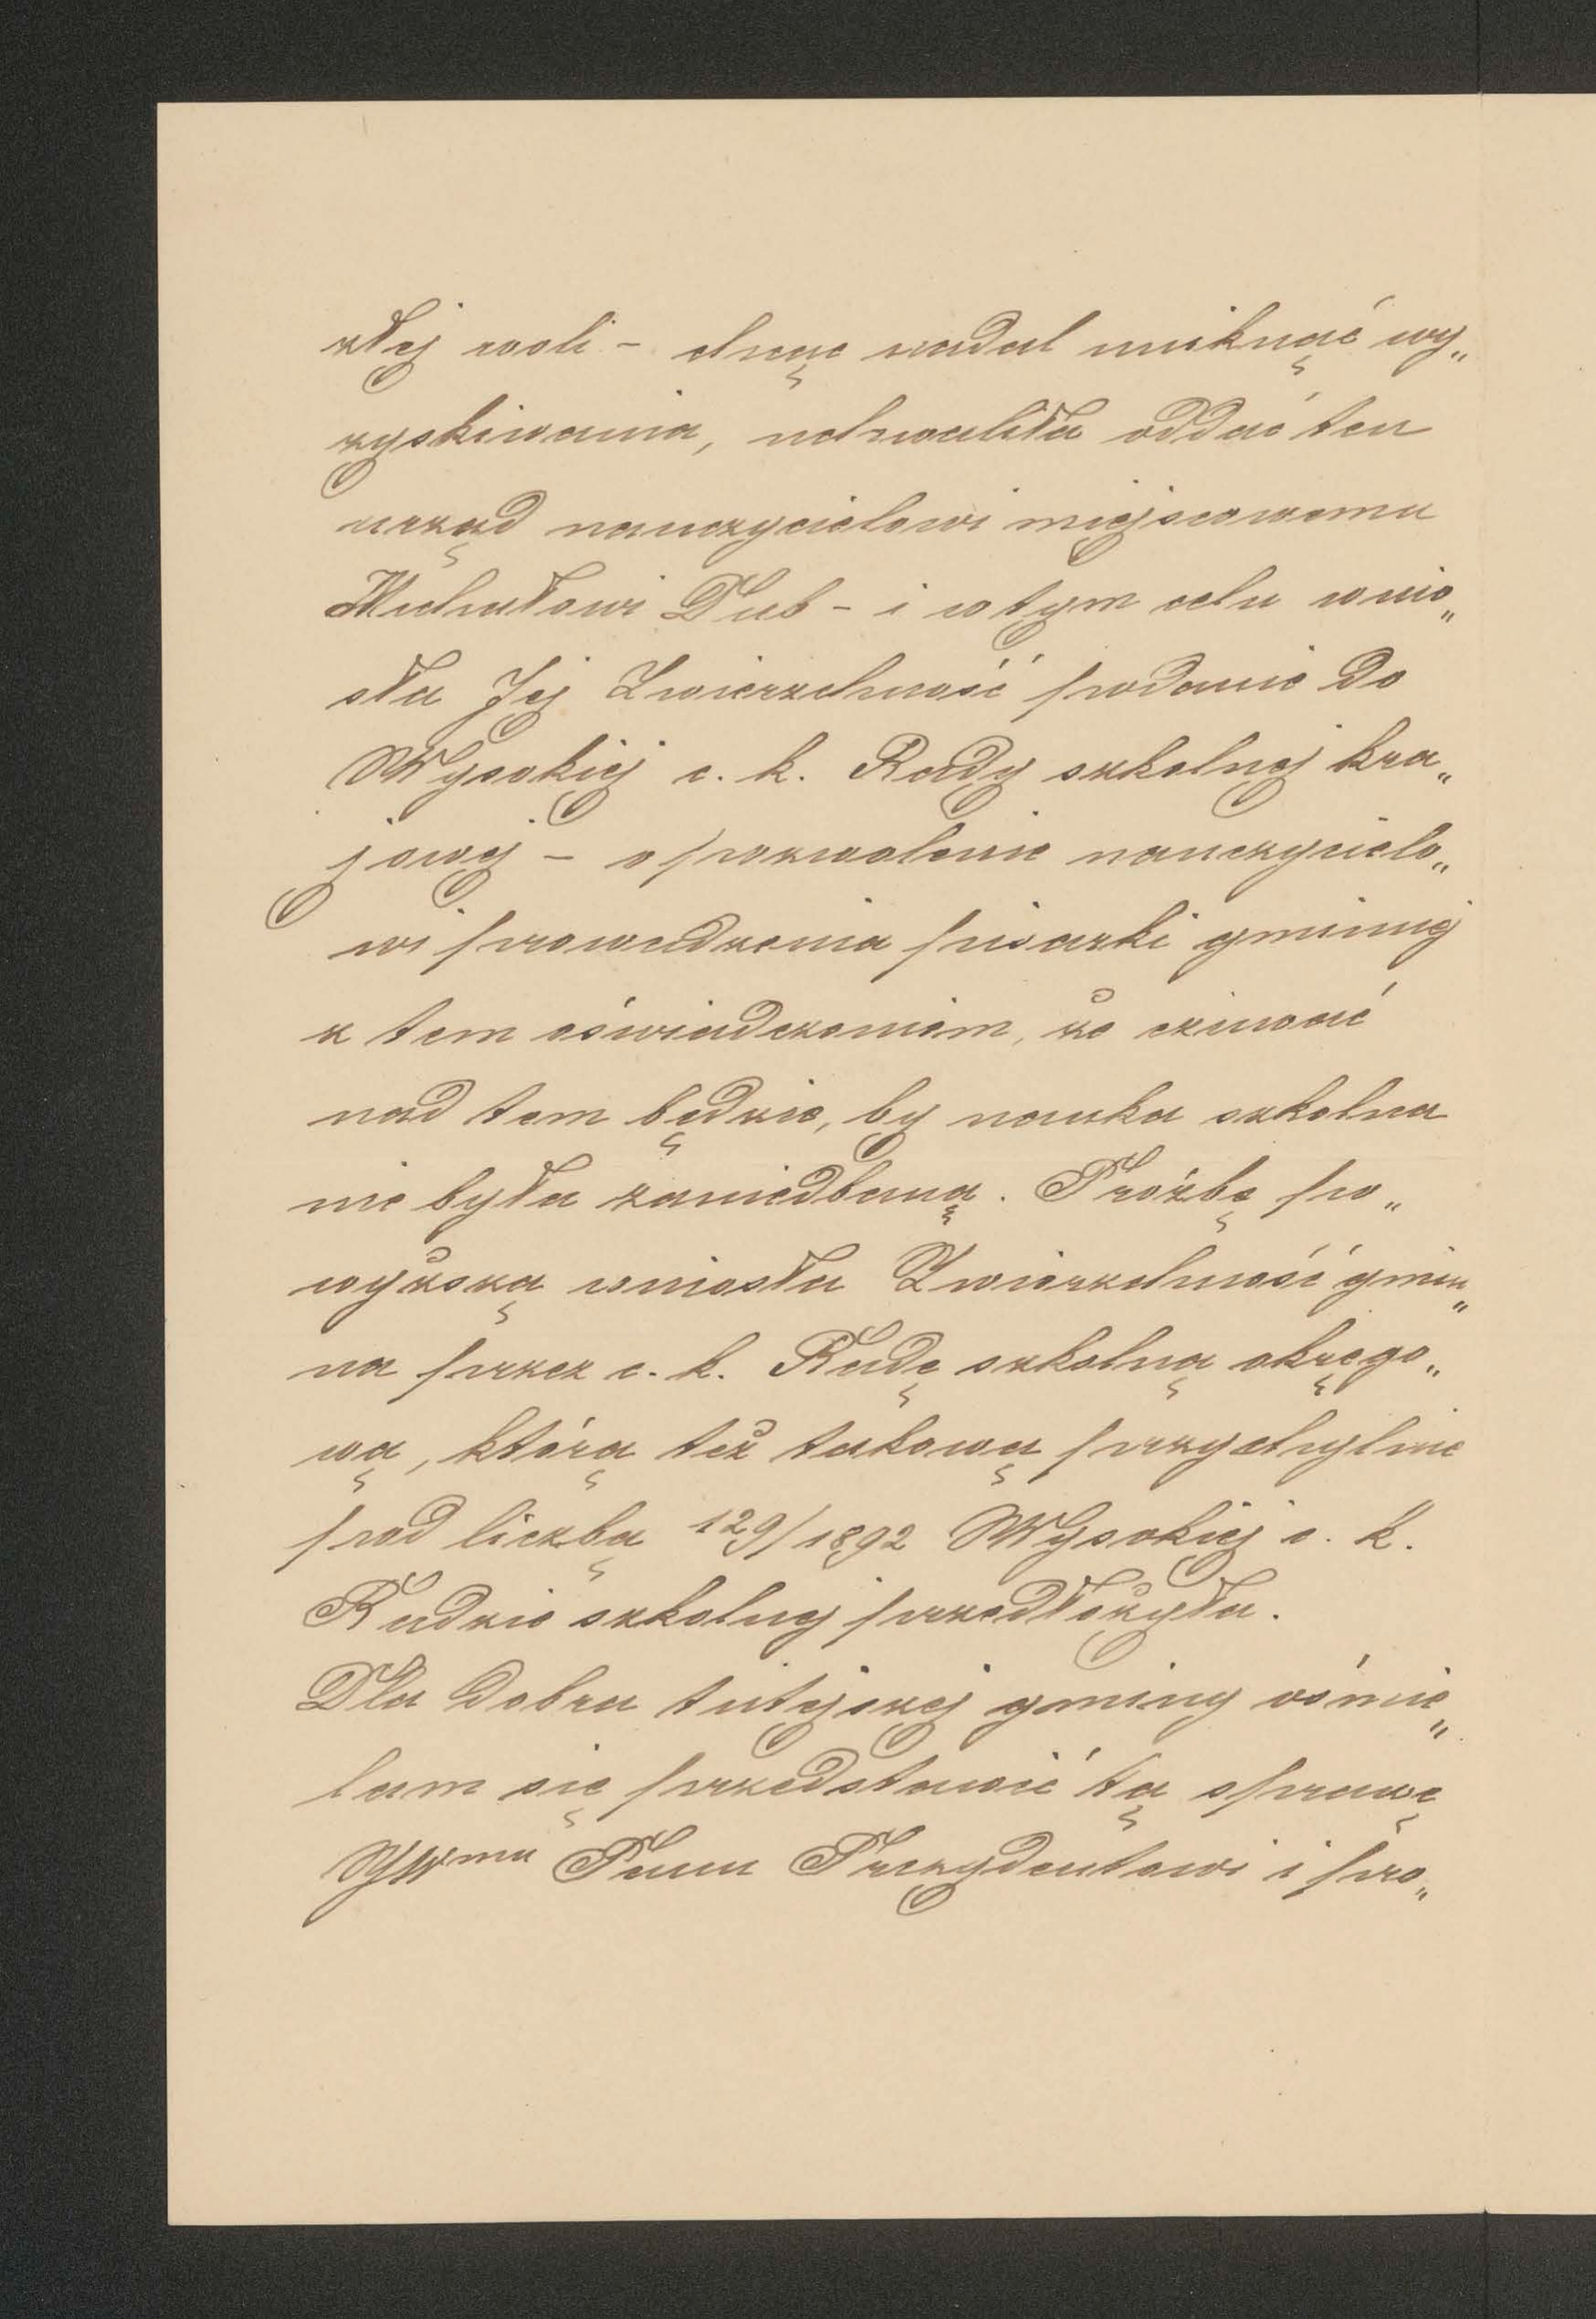 złej woli – chcąc nadal uniknąć wy„
zyskiwania, uchwaliła oddać ten
urząd nauczycielowi miejscowemu
Michałowi Dub – i w tym celu wnio„
sła Jej Zwierzchność podanie do
Wysokiej c. k. Rady szkolnej kra„
jowej – o pozwolenie nauczycielo„
wi prowadzenia pisarki gminnej
z tem oświadczeniem, że czuwać
nad tem będzie, by nauka szkolna
nie była zaniedbaną. Prośbę po„
wyższą wniosła Zwierzchność gmin„
na przez c. k. Radę szkolną okręgo„
wą, którą też takową przychylnie
pod liczbą 129/1892 Wysokiej c. k.
Radzie szkolnej przedłożyła.
Dla dobra tutejszej gminy ośmie„
lam się przedstawić tą sprawę
JWmu Panu Prezydentowi i pro„